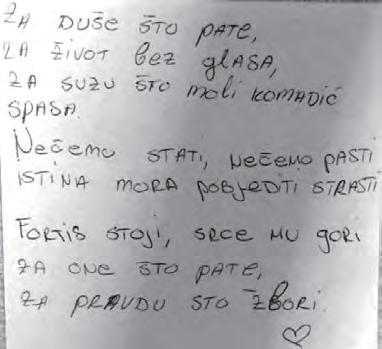 ZA DUŠE ŠTO PATE,
ZA ŽIVOT bez glASA,
ZA SUZU ŠTO moli KOMADIĆ
SPASA.
Nećemo STATI, NEĆEMO PASTI
ISTINA MORA POBJEDITI STRASTI
FORTIS STOJI, SRCE MU GORI
ZA ONE ŠTO PATE,
ZA PRAVDU STO ŽBORI.